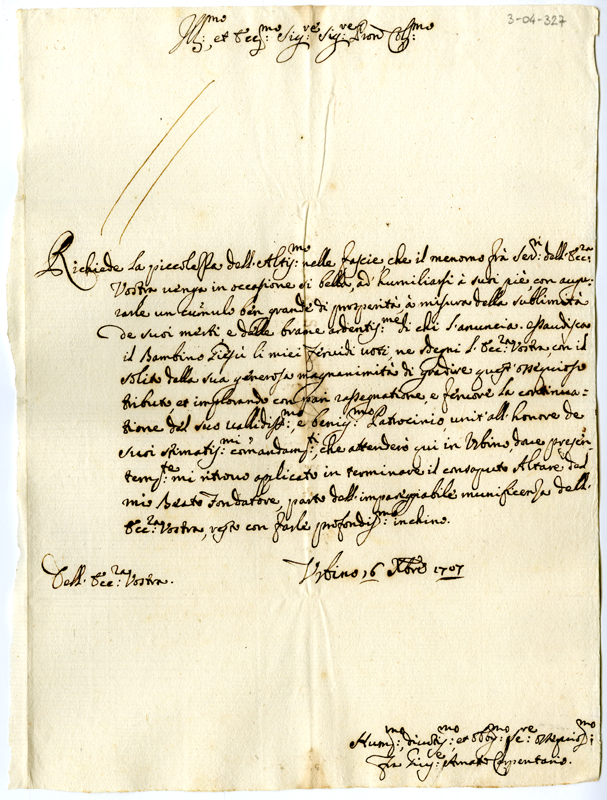 3-04-327
Ill:mo et Ecc:mo Sig:re Sig:re Pron Col:mo
Richiede la piccolezza dell'Altis:mo nelle fascie che il menomo frà Ser:ri dell'Ecc:za
Vostra venga in occasione si bella, ad humiliarsi à suoi piè con augu-
rarle un cumulo ben grande di prosperità à misura della sublimità
de suoi meriti e delle brame ardentis:me di chi l'anuncia. essaudisca
il Bambino Giesù li miei fervidi voti, ne sdegni l'Ecc:za Vostra, con il
solito della sua generosa magnanimità di gradire quest'ossequioso
tributo et implorando con pari rassegnatione, e fervore la continua-
tione del suo validiss:mo, e benig:mo Patrocinio, unit'all'honore de
suoi stimatis:mi comandam:ti, che attenderò qui in Urbino, dove presen-
tem:te mi ritrovo applicato in terminare il consaputo Altare dal
mio Beato Fondatore, parto dell'impareggiabile munificenza dell'
Ecc:za Vostra, resto con farle profondis:mo inchino.
Dell'Ecc:za Vostra.
Urbino 16 Xbre 1707
Hum:mo, divotis:mo, et obb:mo Se:re ossequios:mo
fra Gius:e Amato Carpentario.